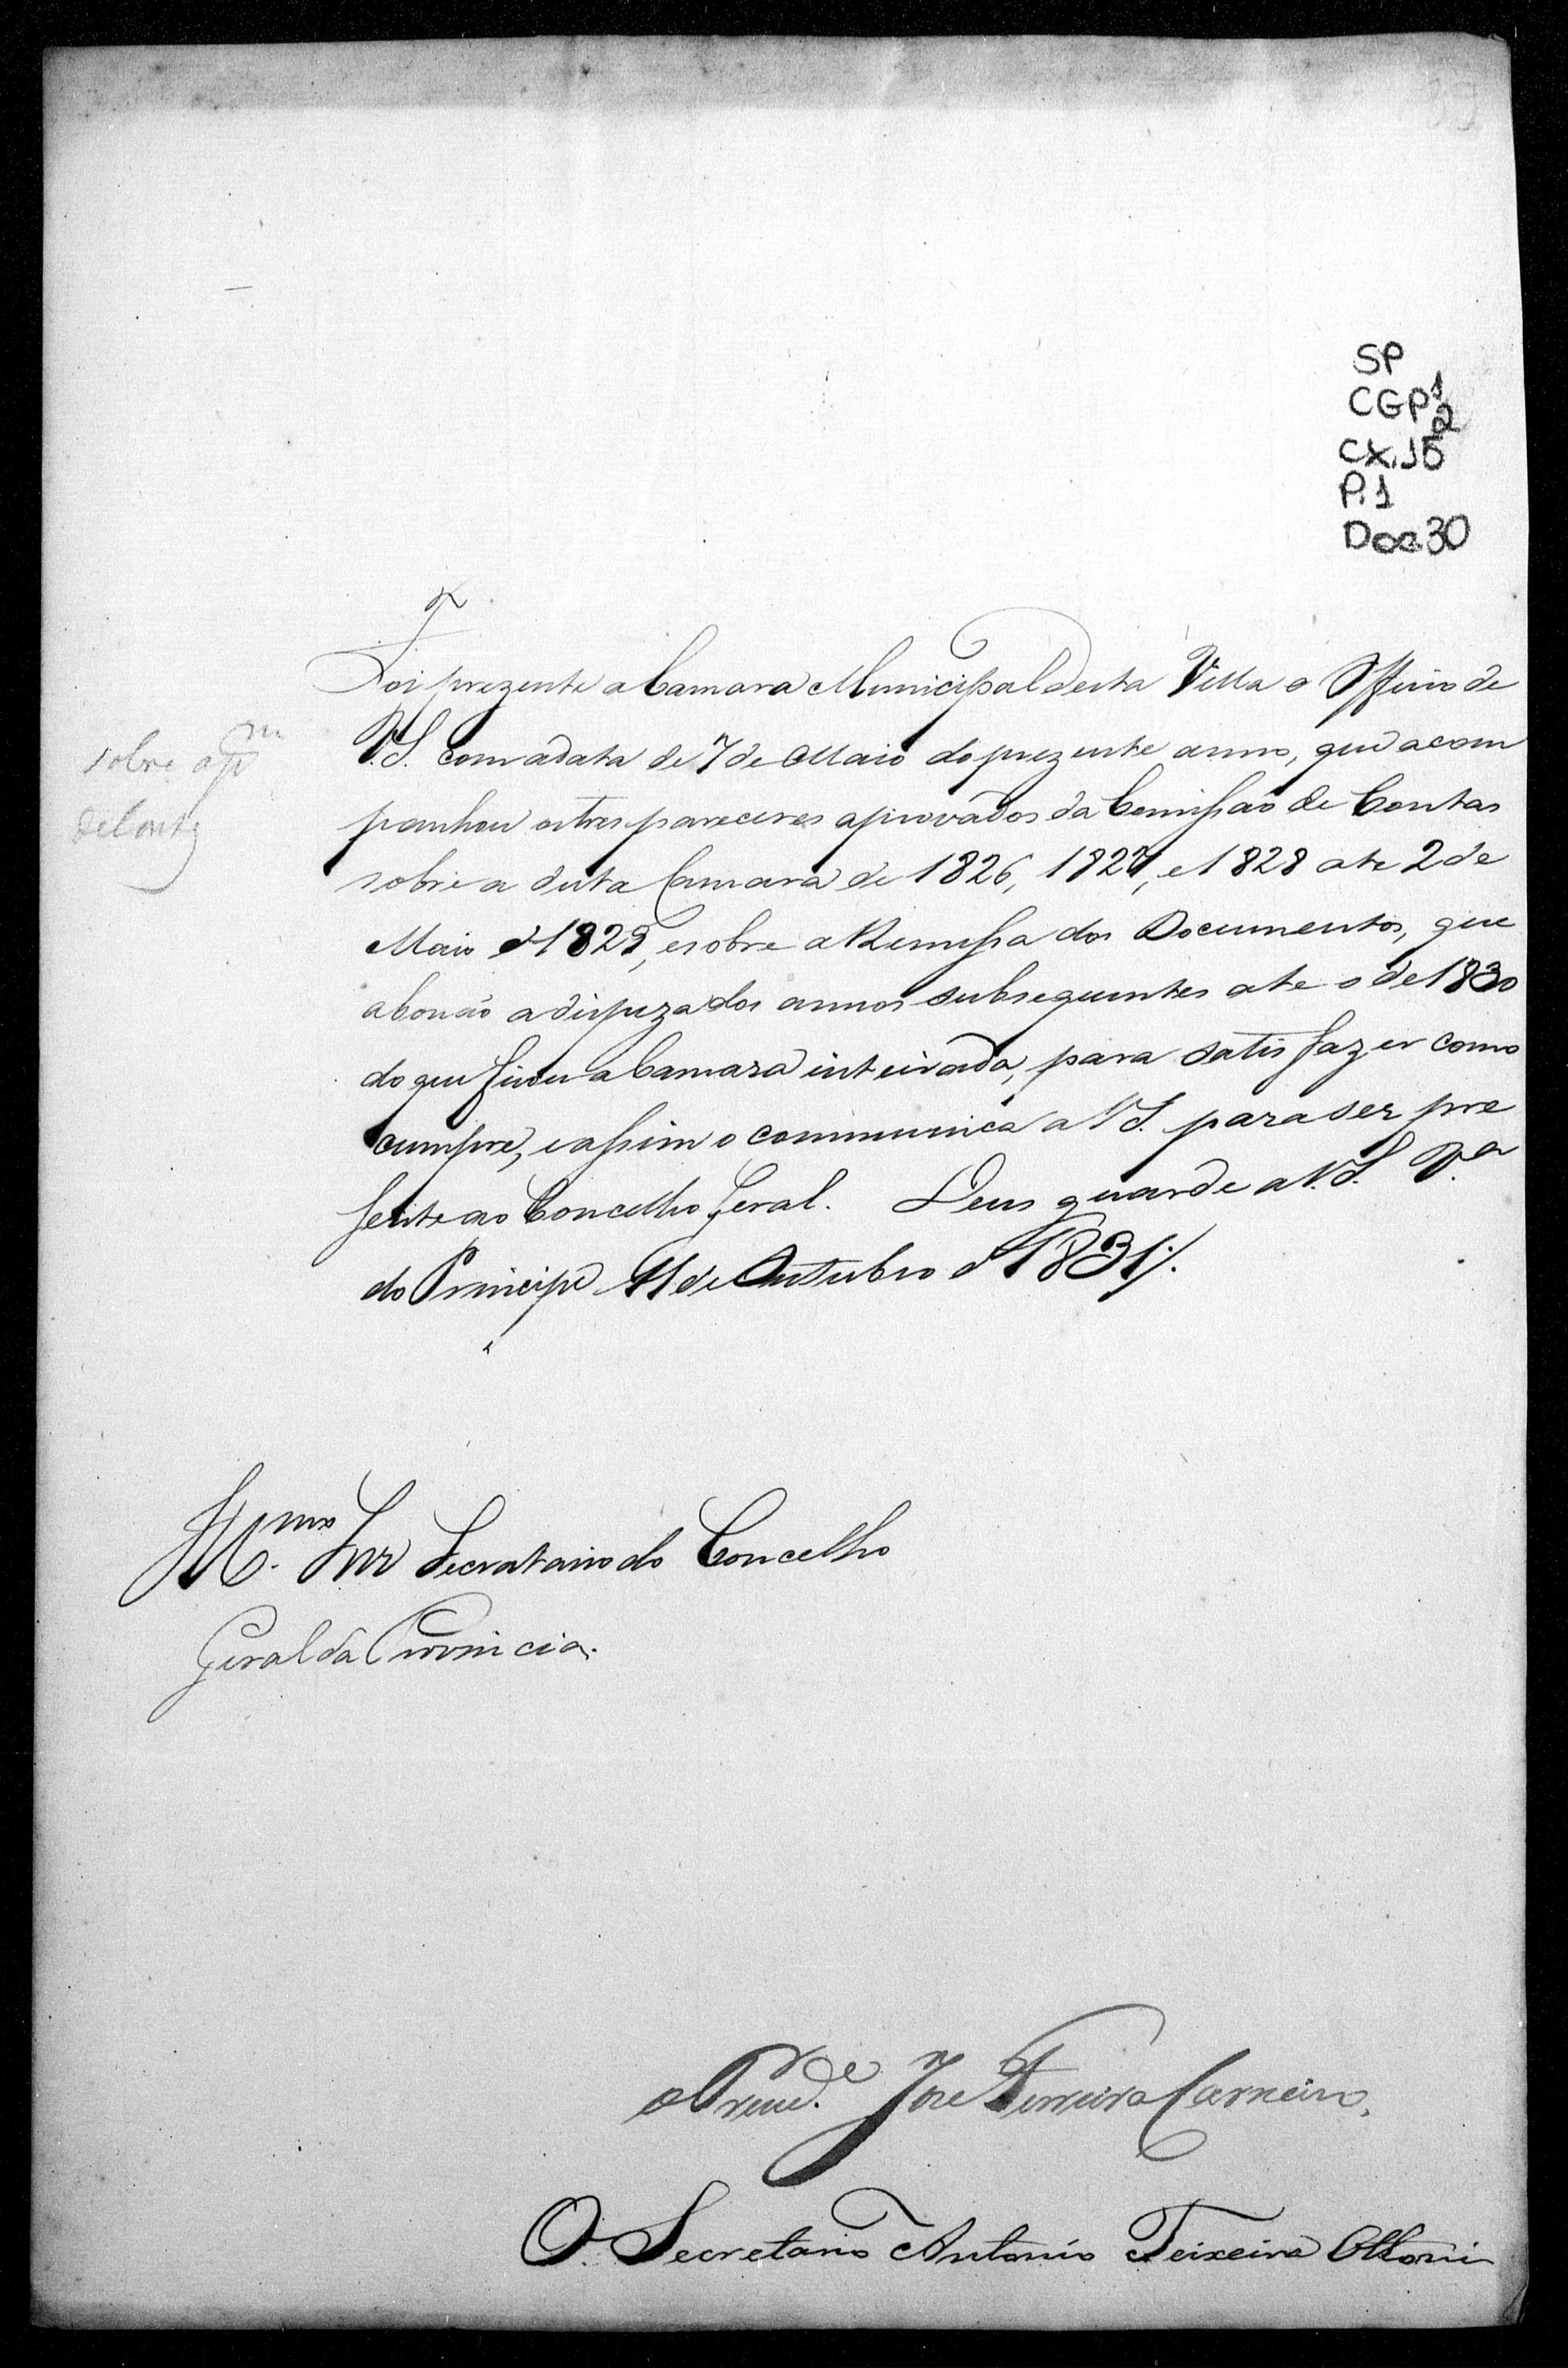 SP
CGP 1
2
CX. 15
P. 1
Doc 30
Foi prezente a Camara Municipal desta Villa o Officio de
V.S. com a data de 7 de Maio do prezente anno, que acom
panhou os tres pareceres aprovados da Comissaõ de Contas
sobre a desta Camara de 1826, 1827, e 1828 ate 2 de
Maio d'1829, e sobre a Remessa dos Documentos, que
abonaõ a dispeza dos annos subsequentes ate o de 1830
do que ficou a Camara inteirada, para satisfazer como
cumpre, e assim o communica a V.S. para ser pre
sente ao Concelho Geral. Deus guarde a V.S. Vª
do Principe 11 de Outubro d'1831.
sobre
de Contas
Illmo Snr Secratario do Concelho
Geral da Provincia.
o Prezde. Jose Ferreira Carneiro,
O Secretario Antonio Teixeira Ottoni